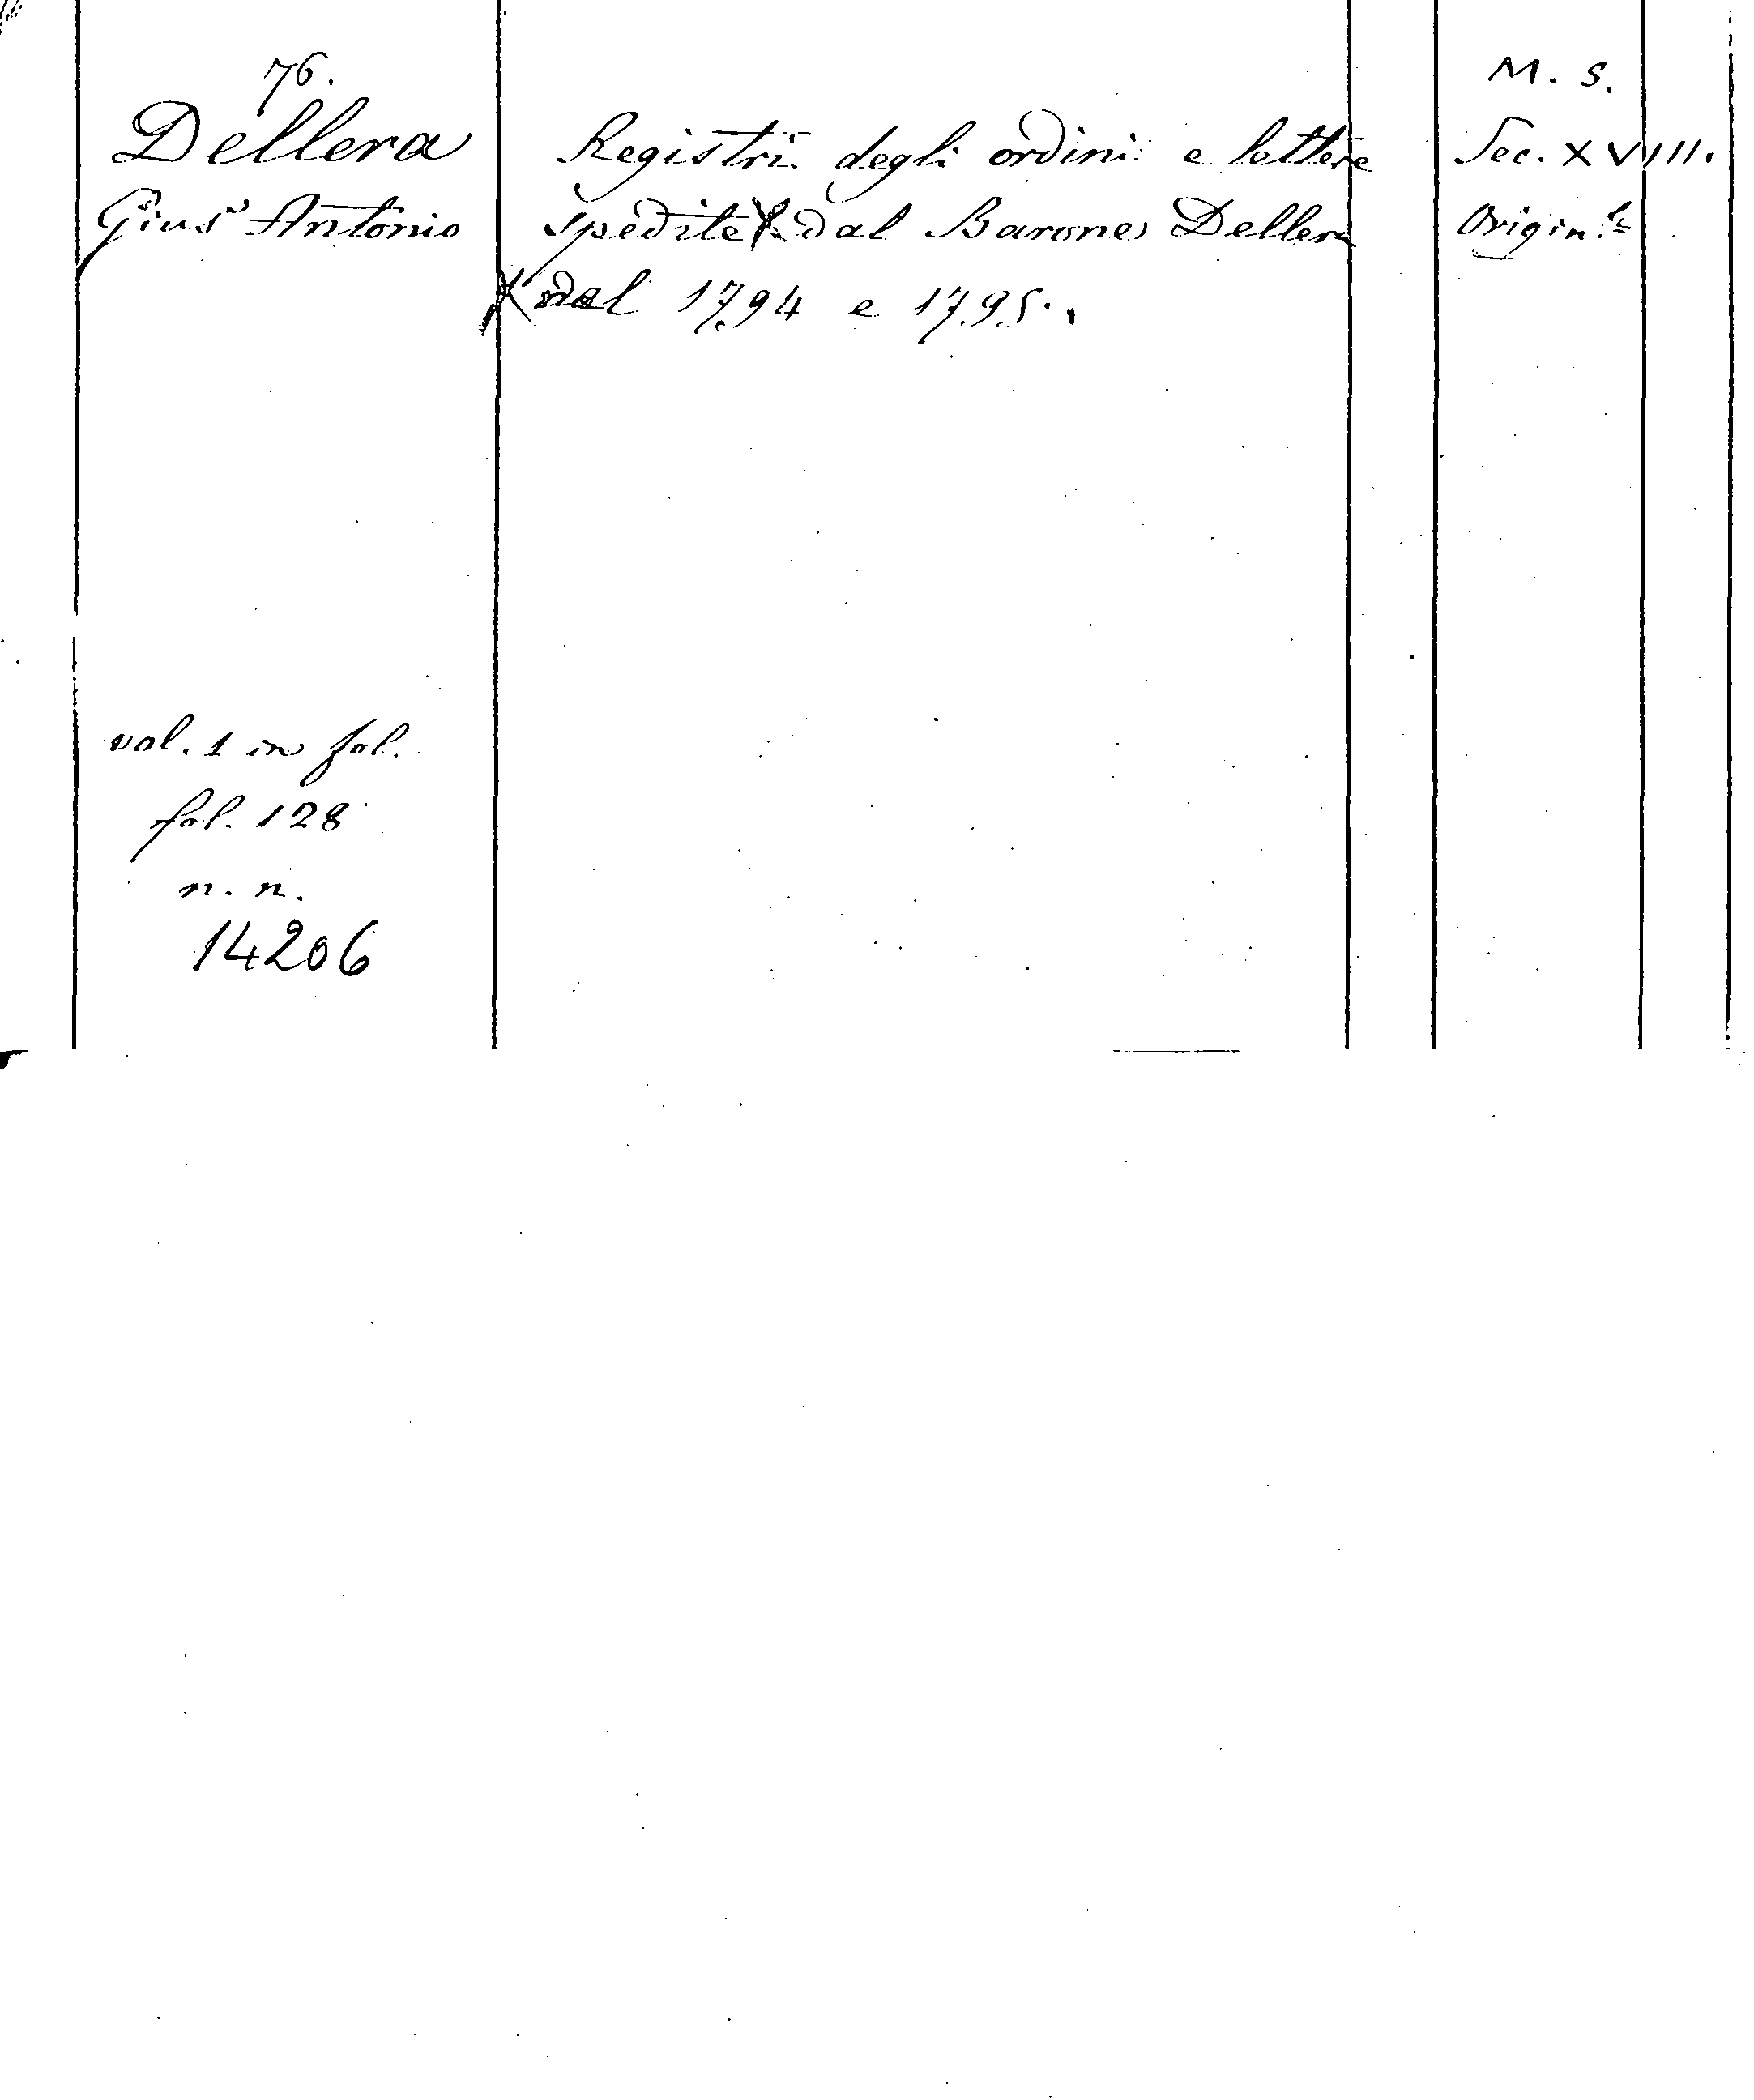 76.
Dellera
Gius.e Antonio
Registri degli ordini e lettere
spedite X dal Barone Dellera
X nel 1794 e 1795.
M. S.
Sec. XVIII.
Origin.le
vol. 1 in fol.
fol. 128
n. n.
14206